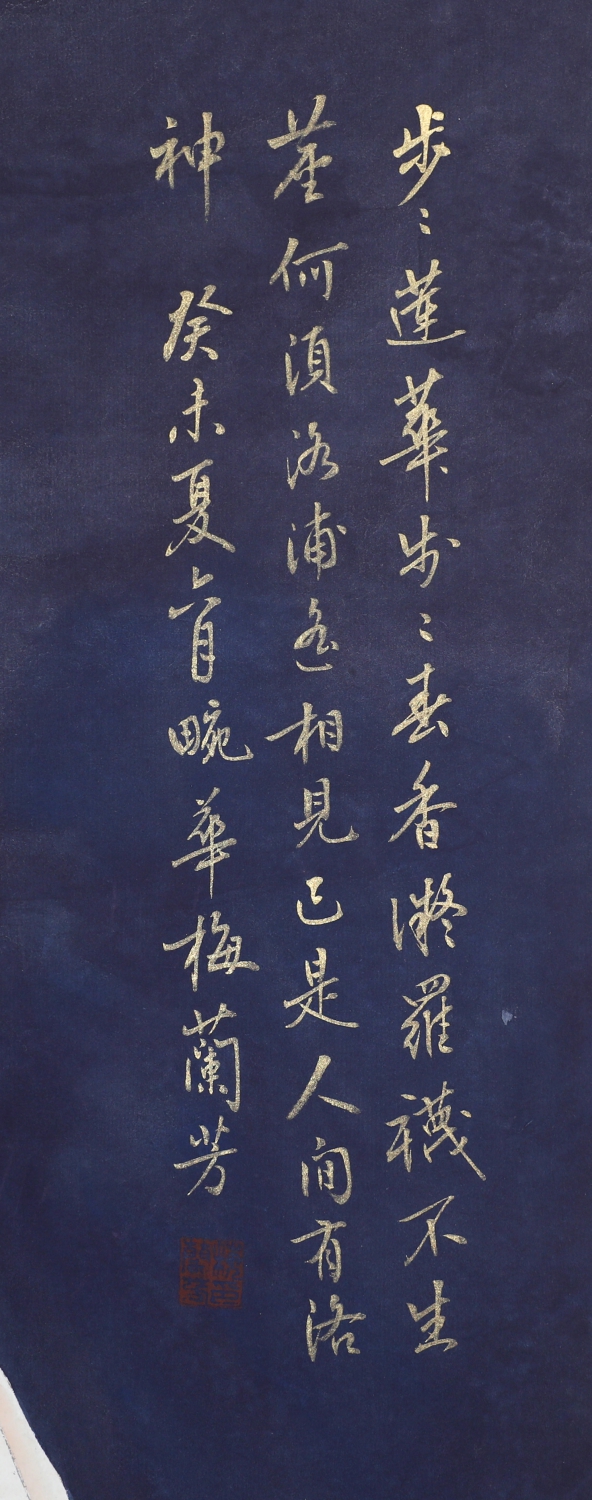 步〻蓮華步〻春香凝羅襪不生
塵何須洛浦遙相見已是人间有洛
神 癸未夏六月畹華梅蘭芳